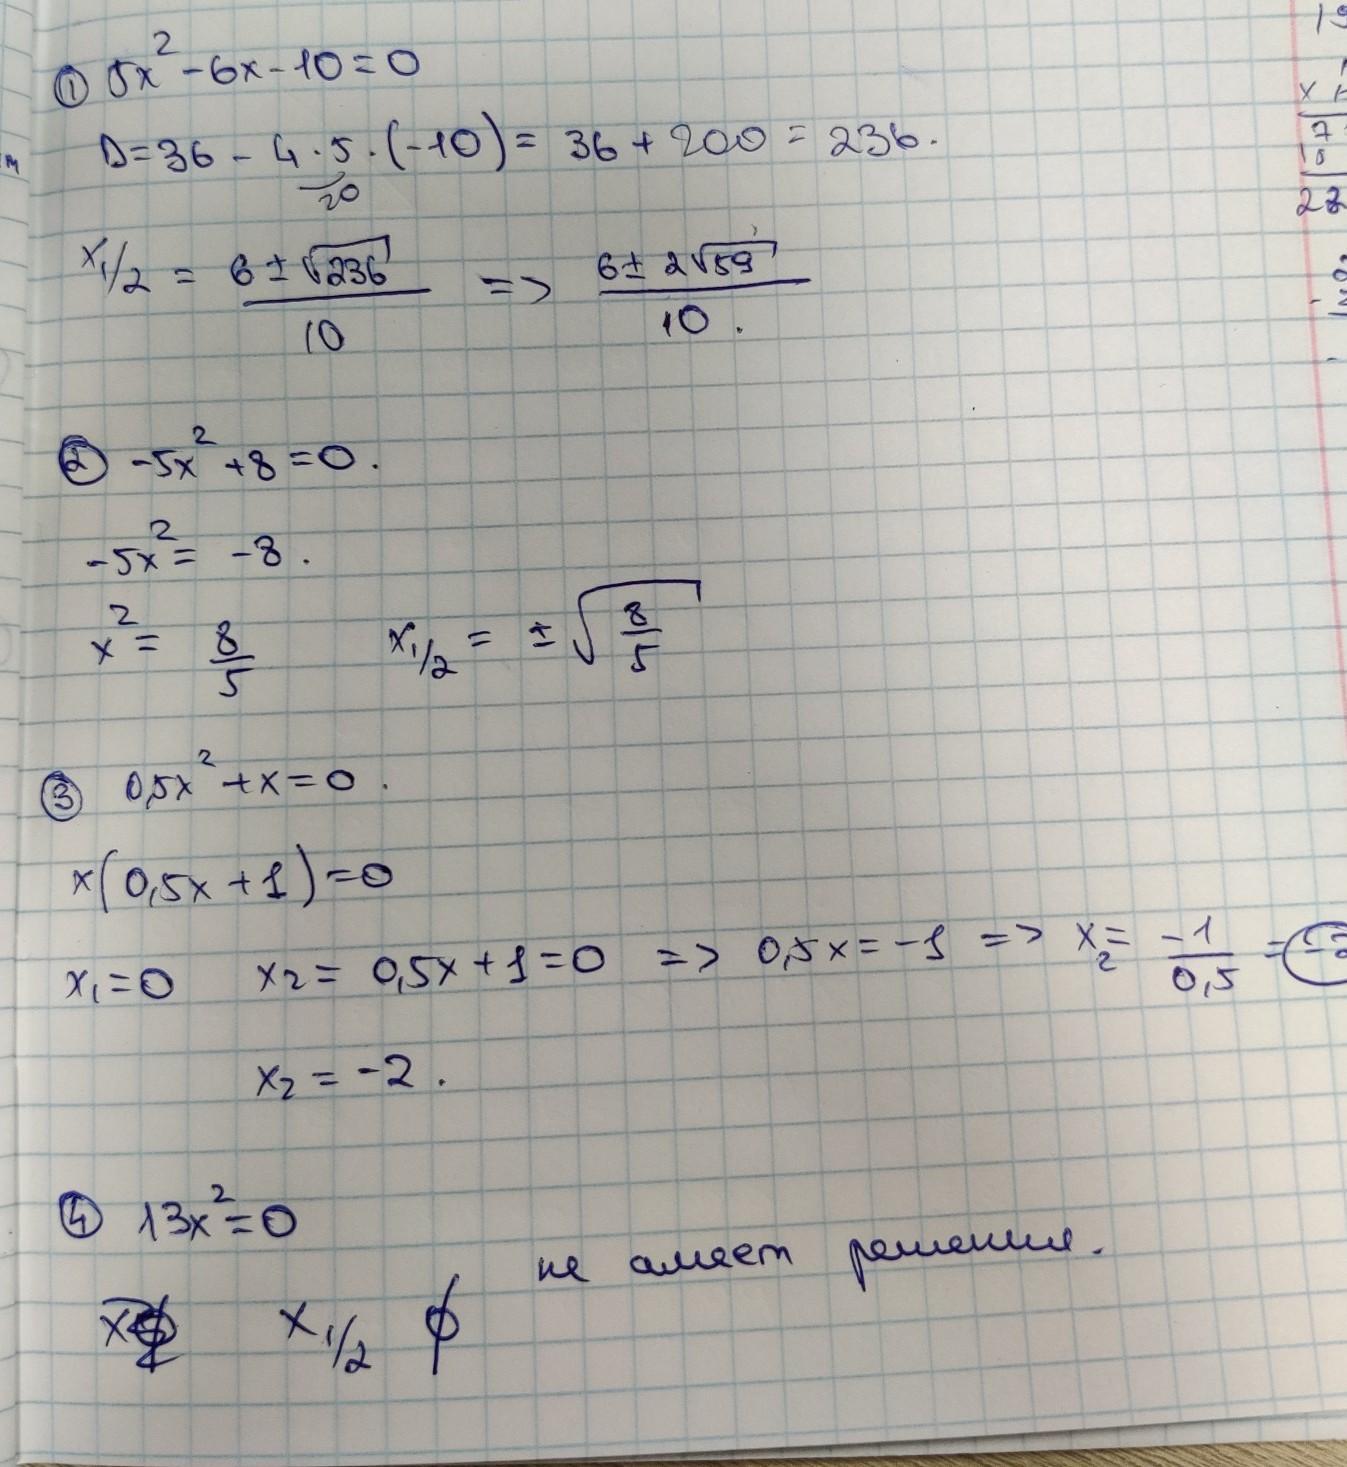 ① 5x² - 6x - 10 = 0
D = 36 - 4 · 5 · (-10) = 36 + 200 = 236.
20
x₁/₂ = (6 ± √236)/10 => (6 ± 2√59)/10.
② -5x² + 8 = 0.
-5x² = -8.
x² = 8/5 x₁/₂ = ± √(8/5)
③ 0,5x² + x = 0.
x(0,5x + 1) = 0
x₁ = 0 x₂ = 0,5x + 1 = 0 => 0,5x = -1 => x₂ = -1/0,5 = -2
x₂ = -2.
④ 13x² = 0
не имеет решения.
x₁/₂ ∅